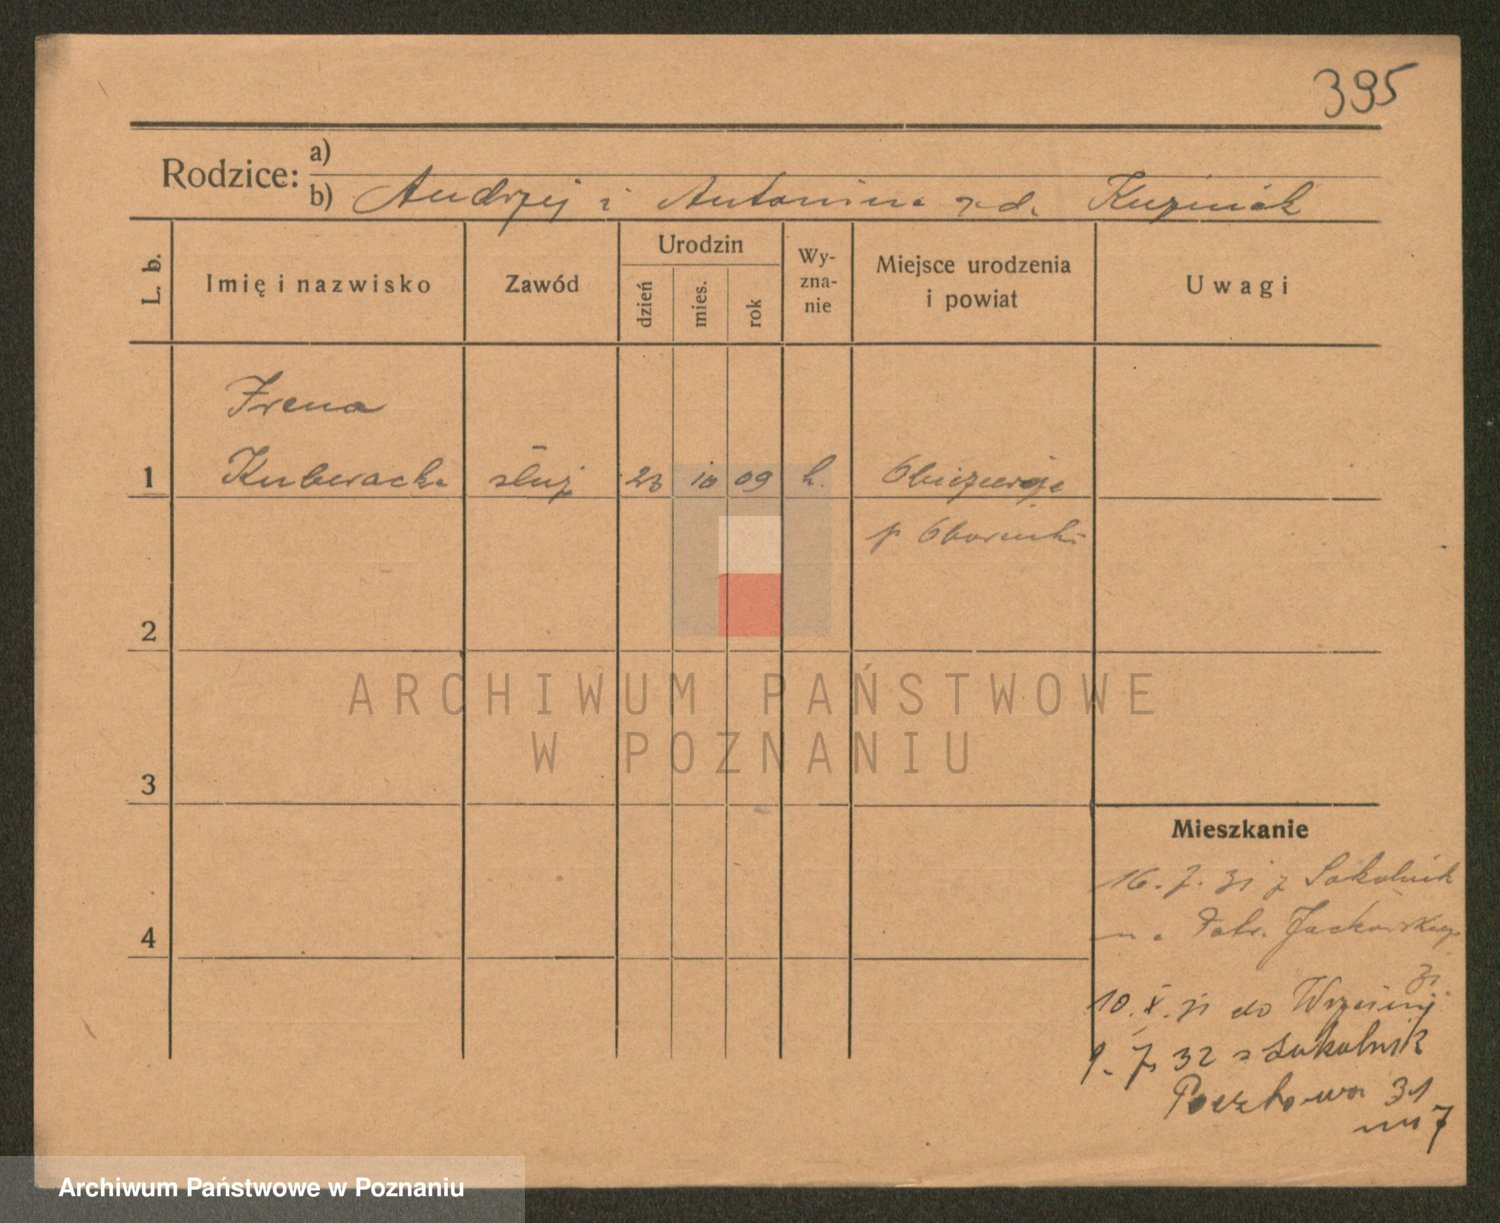 395
Rodzice:
a)
b) Andrzej i Antonina z d. Kuzniak
L. b.
Imię i nazwisko
Zawód
Urodzin
dzień
mies.
rok
Wy-
zna-
nie
Miejsce urodzenia
i powiat
Uwagi
Irena
1 Kuberacka służ 23 10 09 k.
p Oborniki
2
3
4
Mieszkanie
16. 7. 31 z Sokolnik
Jackowskiego
31
10. X. 31 do Wrześni
1. 7 32 z Sokolnik
Pocztowa 31
m 7
ARCHIWUM PAŃSTWOWE
W POZNANIU
Archiwum Państwowe w Poznaniu